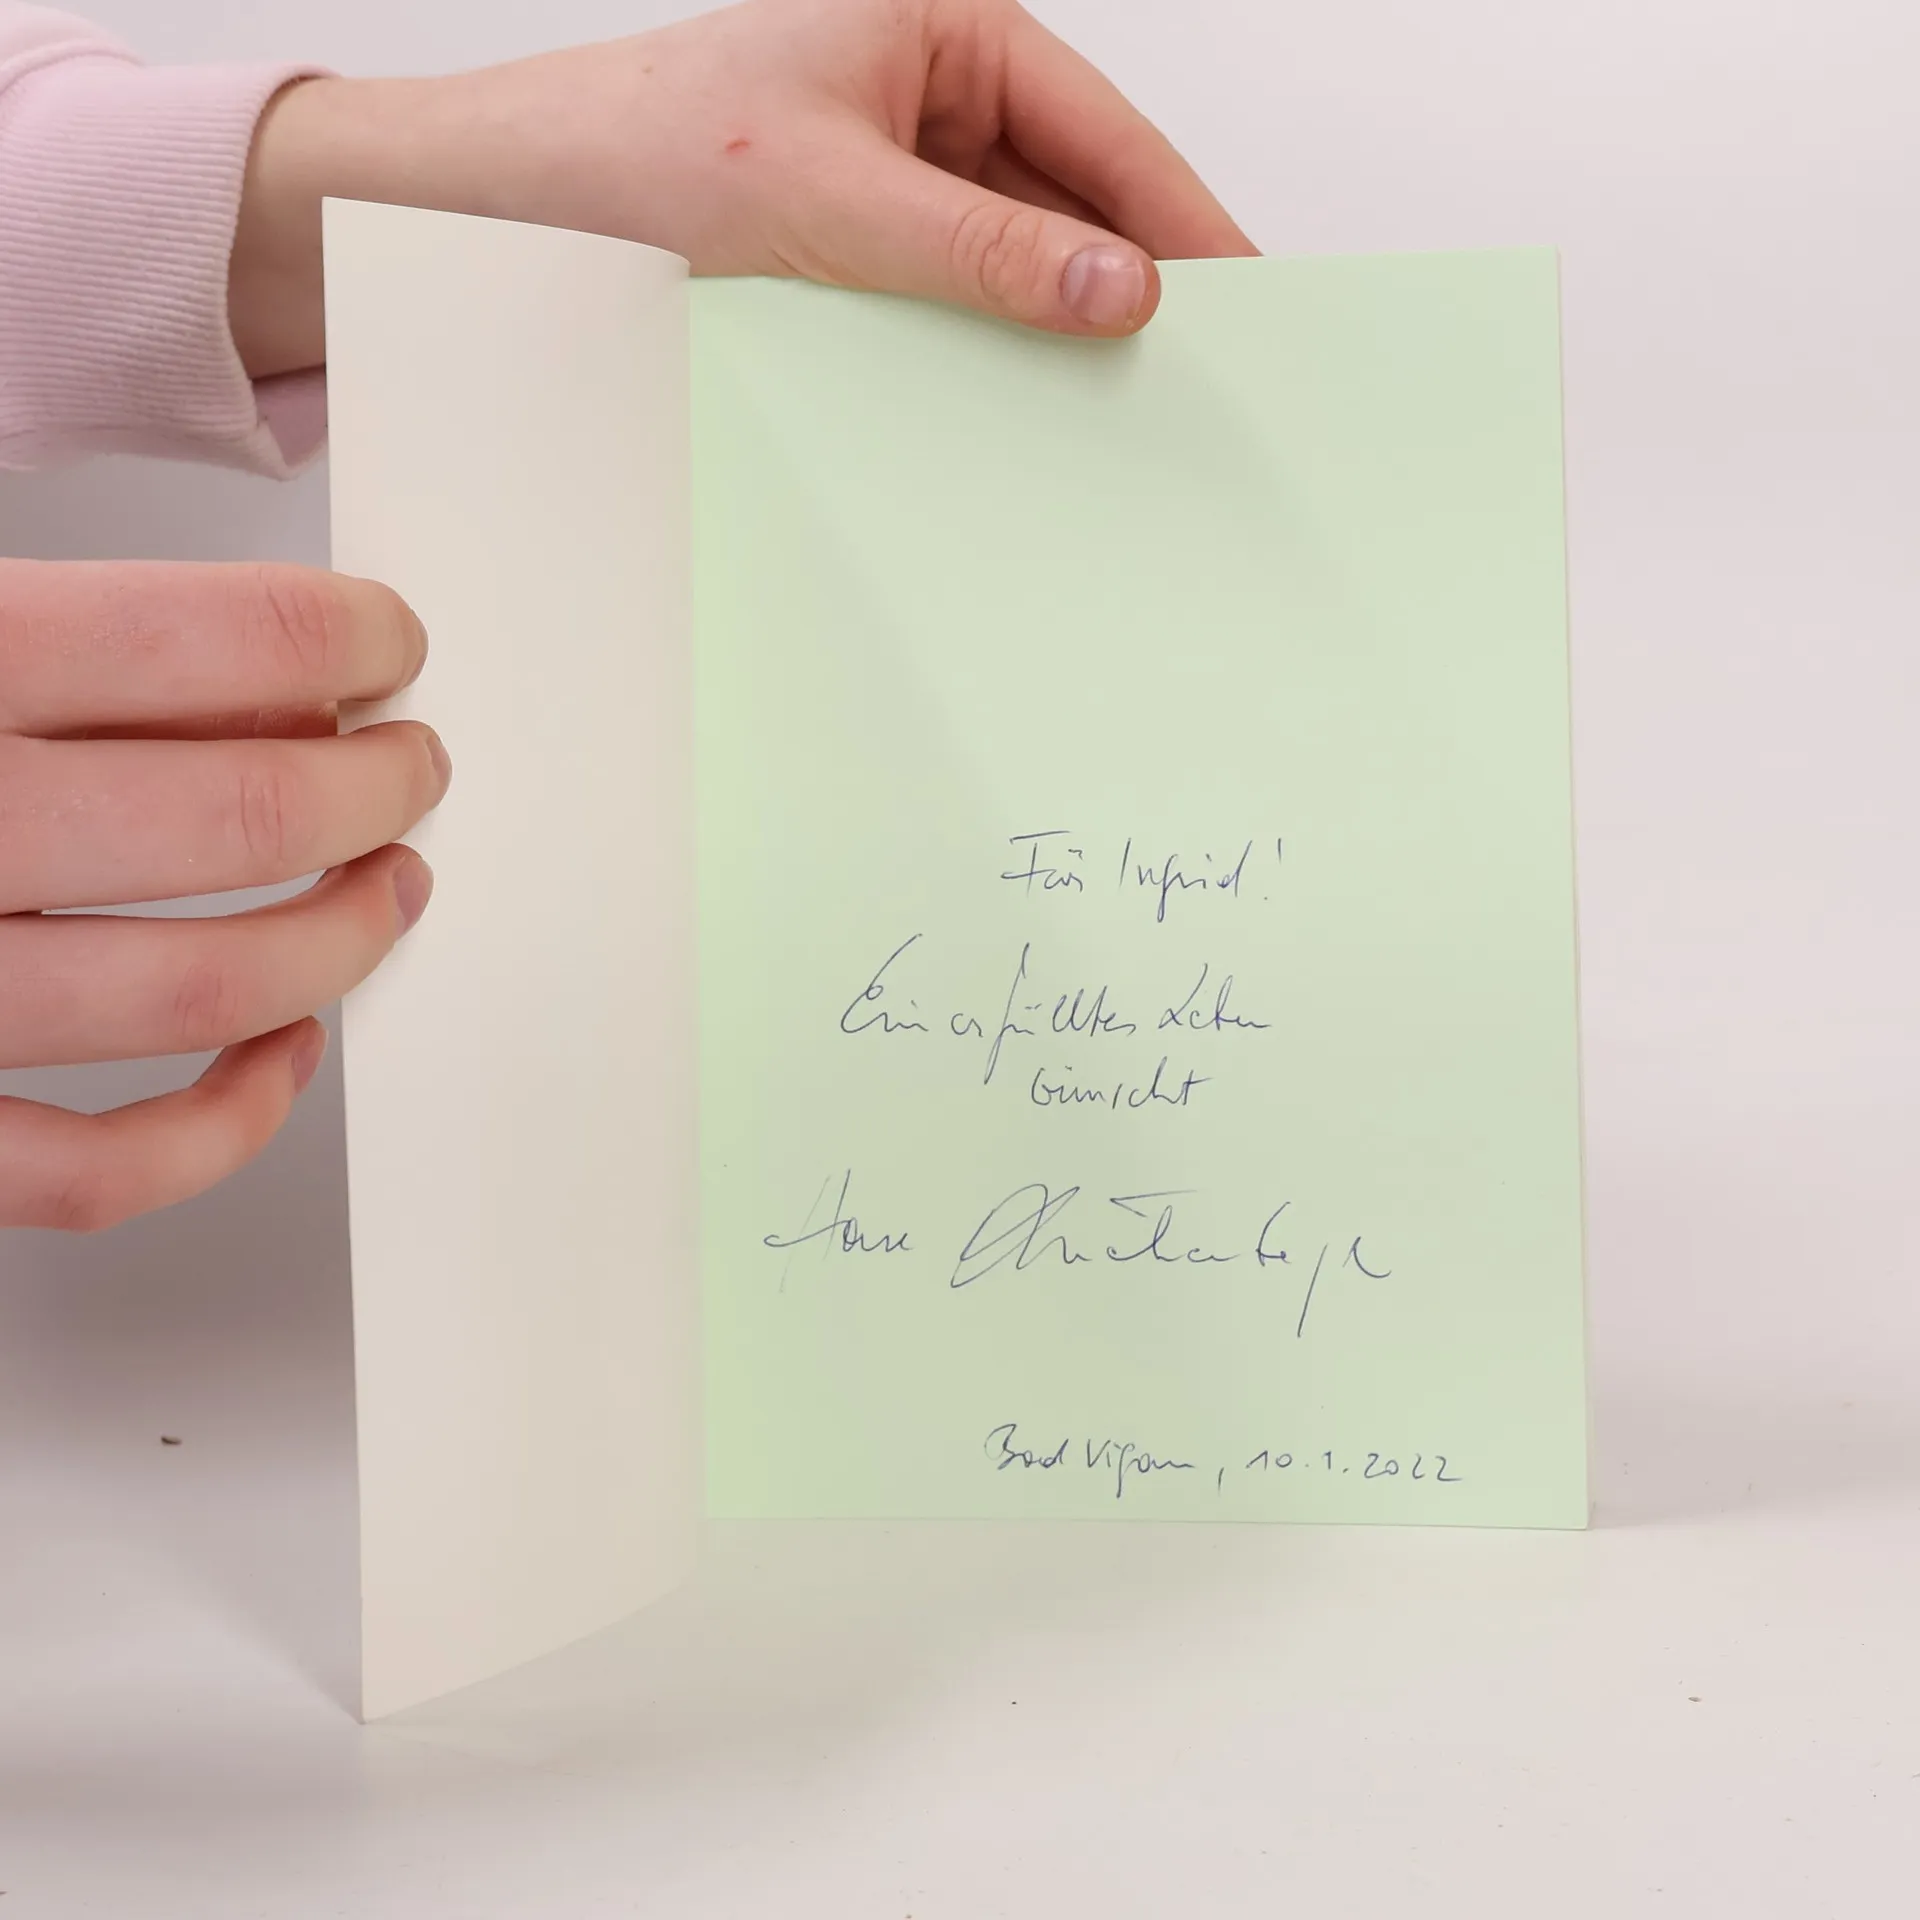 Für Ingrid!
Ein erfülltes Leben
wünscht
Bad Vigaun, 10.1.2022